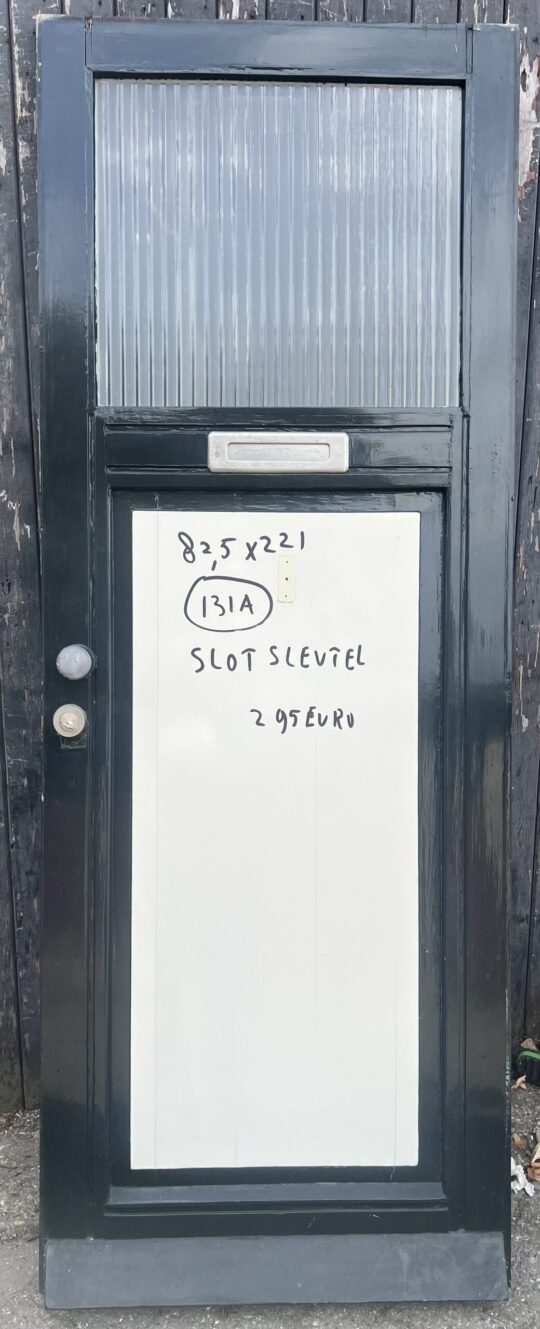 82,5 x 221
131A
SLOT SLEUTEL
295 EURO